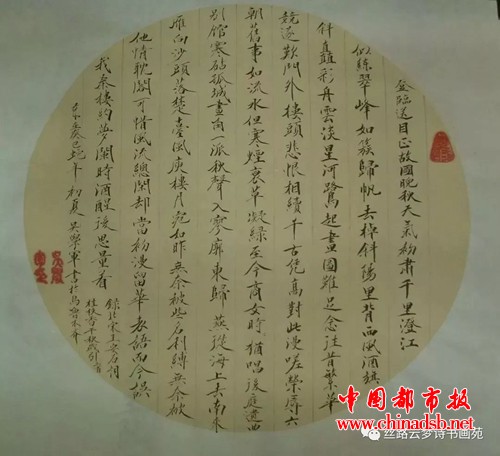 登臨送目正故國晚秋天氣初肅千里澄江
似練翠峰如簇歸帆去棹斜陽里背西風酒旗
斜矗彩舟雲淡星河鷺起畫圖難足念往昔繁華
競逐歎門外樓頭悲恨相續千古凭高對此漫嗟榮辱六
朝舊事如流水但寒煙衰草凝緑至今商女時猶唱後庭遺曲
別館寒砧孤城畫角一派秋聲入寥廓東歸燕從海上去南來
雁向沙頭落楚臺風庾樓月宛如昨無奈被些名利縛無奈被
他情耽閣可惜風流總閑却當初漫留華表語而今誤
我秦樓約夢闌時酒醒後思量着
錄北宋王安石詞
桂枝香千秋歲引二首
癸巳蛇年初夏
中国都市报
www.chinadsb.net
丝路云梦诗书画苑